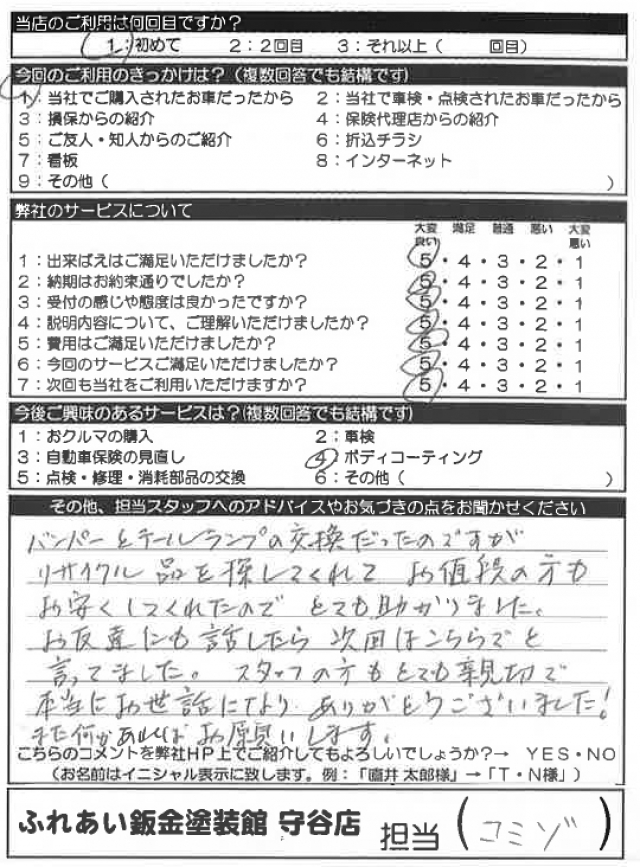 当店のご利用は何回目ですか？
1：初めて 2：2回目 3：それ以上（ 回目）
今回のご利用のきっかけは？（複数回答でも結構です）
1：当社でご購入されたお車だったから 2：当社で車検・点検されたお車だったから
3：損保からの紹介 4：保険代理店からの紹介
5：ご友人・知人からのご紹介 6：折込チラシ
7：看板 8：インターネット
9：その他（ ）
弊社のサービスについて
大変良い 満足 普通 悪い 大変悪い
1：出来ばえはご満足いただけましたか？ 5・4・3・2・1
2：納期はお約束通りでしたか？ 5・4・3・2・1
3：受付の感じや態度は良かったですか？ 5・4・3・2・1
4：説明内容について、ご理解いただけましたか？ 5・4・3・2・1
5：費用はご満足いただけましたか？ 5・4・3・2・1
6：今回のサービスご満足いただけましたか？ 5・4・3・2・1
7：次回も当社をご利用いただけますか？ 5・4・3・2・1
今後ご興味のあるサービスは？（複数回答でも結構です）
1：おクルマの購入 2：車検
3：自動車保険の見直し 4：ボディコーティング
5：点検・修理・消耗部品の交換 6：その他（ ）
その他、担当スタッフへのアドバイスやお気づきの点をお聞かせください
バンパーとテールランプの交換だったのですが
リサイクル品を探してくれて お値段の方も
お安くしてくれたので とても助かりました。
お友達にも話したら 次回はこちらでと
言ってました。 スタッフの方もとても親切で
本当にお世話になり ありがとうございました！
また何かあればお願いします。
こちらのコメントを弊社HP上でご紹介してもよろしいでしょうか？→ YES・NO
（お名前はイニシャル表示に致します。例：「直井 太郎様」→「T・N様」）
ふれあい鈑金塗装館 守谷店 担当（コミゾ）